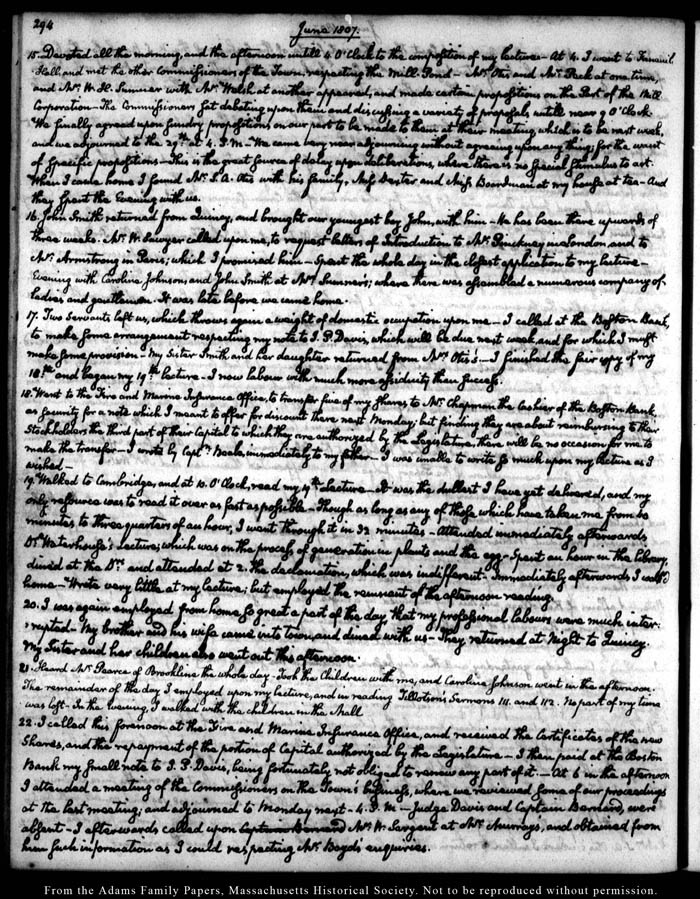 294
June 1807.
15. Devoted all the morning, and the afternoon untill 4 O'Clock to the composition of my lecture - At 4. I went to Faneuil
Hall, and met the other Commissioners of the Town, respecting the Mill-Pond - Mr. Otis and Mr. Peck at one time,
and Mr. W. H. Sumner with Mr. Welsh at another appeared, and made certain propositions on the Part of the Mill
Corporation - The Commissioners sat debating upon them and discussing a variety of proposals untill near 9 O'Clock.
We finally agreed upon sundry propositions on our part to be made to them at their meeting, which is to be next week,
and we adjourned to the 29th. at 4. P.M. - We came very near adjourning without agreeing upon any thing; for the want
of specific propositions - This is the great source of delay upon deliberations, where there is no special stimulus to act.
When I came home I found Mr. S. A. Otis with his family, Miss Dexter and Miss Boardman at my house at tea - And
they spent the Evening with us.
16. John Smith returned from Quincy, and brought our youngest boy John, with him - He has been there upwards of
three weeks. Mr. W. Sawyer called upon me, to request letters of Introduction to Mr. Pinckney in London, and to
Mr. Armstrong in Paris; which I promised him - Spent the whole day in the closest application to my lecture -
Evening with Caroline Johnson, and John Smith at Mrs. Sumner's; where there was assembled a numerous company of
Ladies and gentlemen. It was late before we came home.
17. Two Servants left us, which throws again a weight of domestic occupation upon me - I called at the Boston Bank,
to make some arrangement respecting my note to I. P. Davis, which will be due next week, and for which I must
make some provision - My Sister Smith and her daughter returned from Mrs. Otis's - I finished the fair copy of my
18th. and began my 19th. lecture - I now labour with much more assiduity than success.
18. Went to the Fire and Marine Insurance Office, to transfer five of my Shares to Mr. Chapman the Cashier of the Boston Bank
as security for a note which I meant to offer for discount there next Monday; but finding they are about reimbursing to their
Stockholders the third part of their Capital to which they are authorized by the Legislature, there will be no occasion for me to
make the transfer - I wrote by Captn. Beale, immediately to my father - I was unable to write so much upon my lecture as I
wished -
19. Walked to Cambridge, and at 10. O'Clock, read my lecture - It was the dullest I have yet delivered, and my
only resource was to read it over as fast as possible - Though as long as any of those which have taken me from 40
minutes to three quarters of an hour, I went through it in 32 minutes - Attended immediately afterwards
Dr. Waterhouse's Lecture; which was on the process of generation in plants and the egg - Spent an hour in the library,
dined at the Drs. and attended at 2. the declamation, which was indifferent - Immediately afterwards I walk'd
home - Wrote very little at my lecture; but employed the remnant of the afternoon reading.
20. I was again employed from home so great a part of the day, that my professional labours were much inter:
:rupted - My brother and his wife came into town, and dined with us - They returned at Night to Quincy.
My Sister and her children also went out this afternoon.
21. Heard Mr. Pearce of Brookline the whole day - Took the Children with me, and Caroline Johnson went in the afternoon.
The remainder of the day I employed upon my lecture, and in reading Tillotson's Sermons 111. and 112. No part of my time
was lost - In the evening, I walked with the children in the Mall
22. I called this forenoon at the Fire and Marine Insurance Office, and received the Certificates of the new
Shares, and the repayment of the portion of Capital authorized by the Legislature - I then paid at the Boston
Bank my small note to I. P. Davis, being fortunately not obliged to renew any part of it. - At 6 in the afternoon
I attended a meeting of the Commissioners on the Town's business, where we reviewed some of our proceedings
at the last meeting; and adjourned to Monday next - 4. P.M - Judge Davis and Captain Bernard, were
absent - I afterwards called upon Captain Bernard Mr. W. Sargent at Mr. Murray's, and obtained from
him such information as I could respecting Mr. Boyd's enquiries.
From the Adams Family Papers, Massachusetts Historical Society. Not to be reproduced without permission.